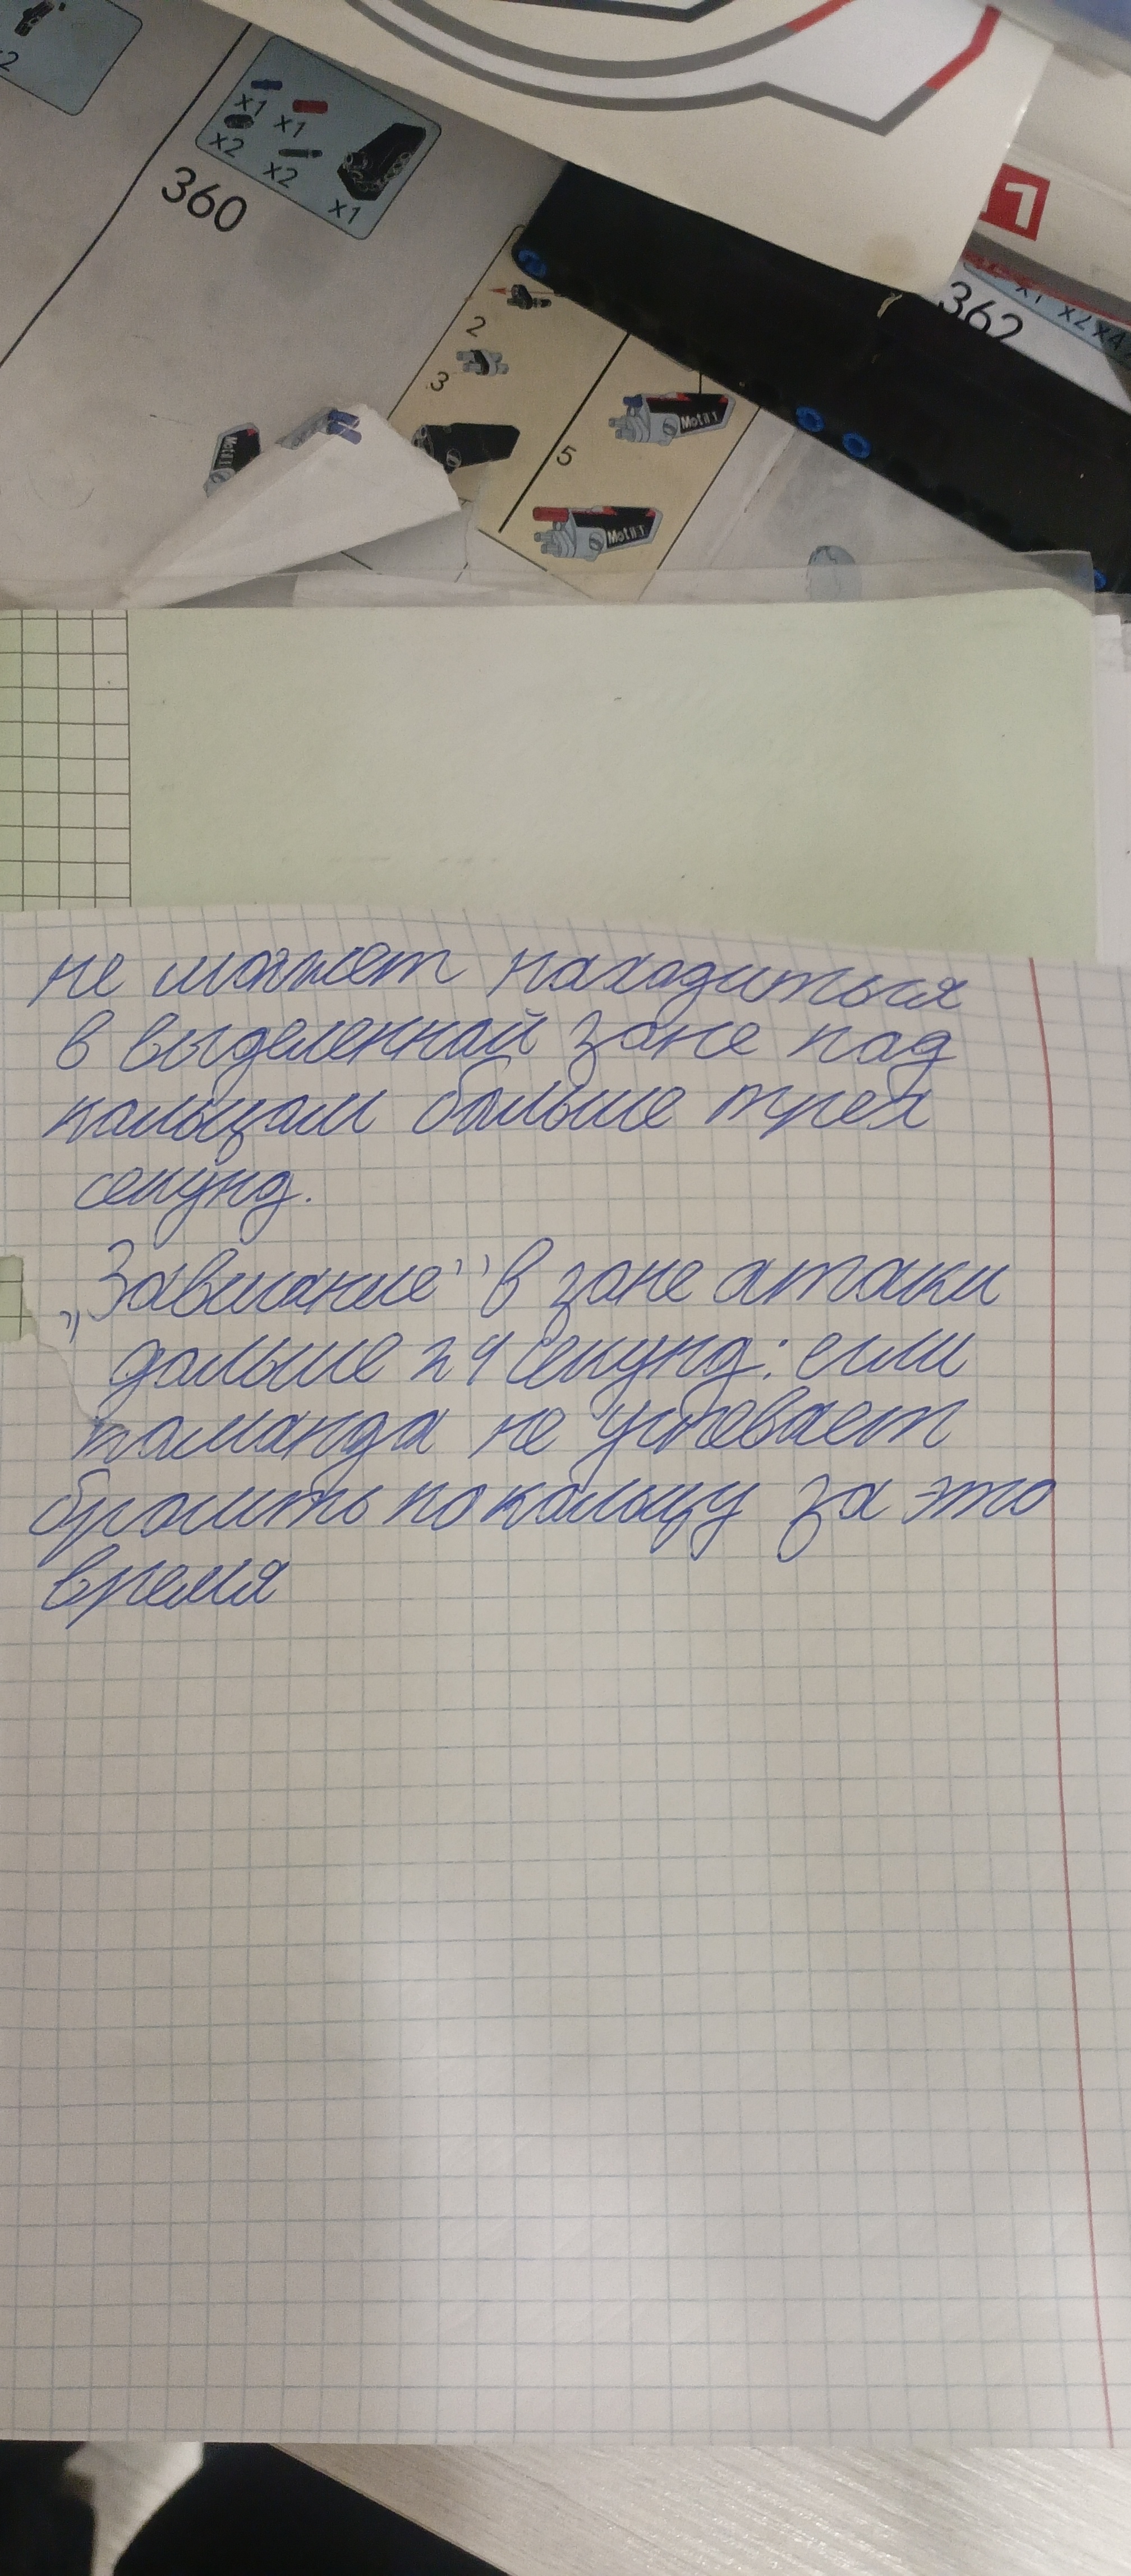 x2
x1
x1
x2
x2
x1
360
362
x1 x2 x4
2
3
5
не может находиться
в выделенной зоне под
кольцом больше трех
секунд.
„Зависание" в зоне атаки
дольше 24 секунд: если
команда не успевает
бросить по кольцу за это
время